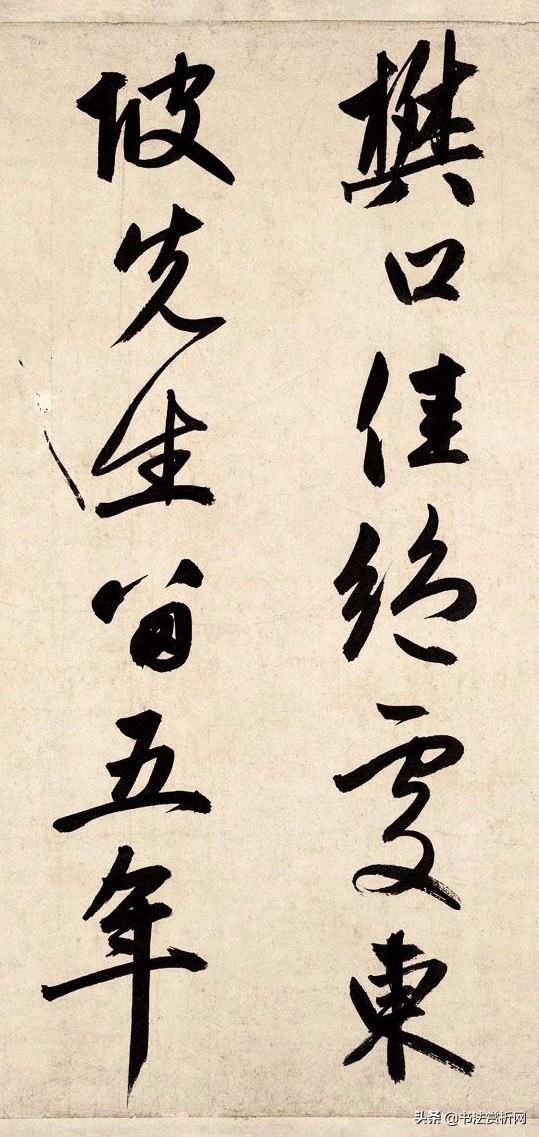 樊口佳絕處東
坡先生留五年
头条 @书法赏析网